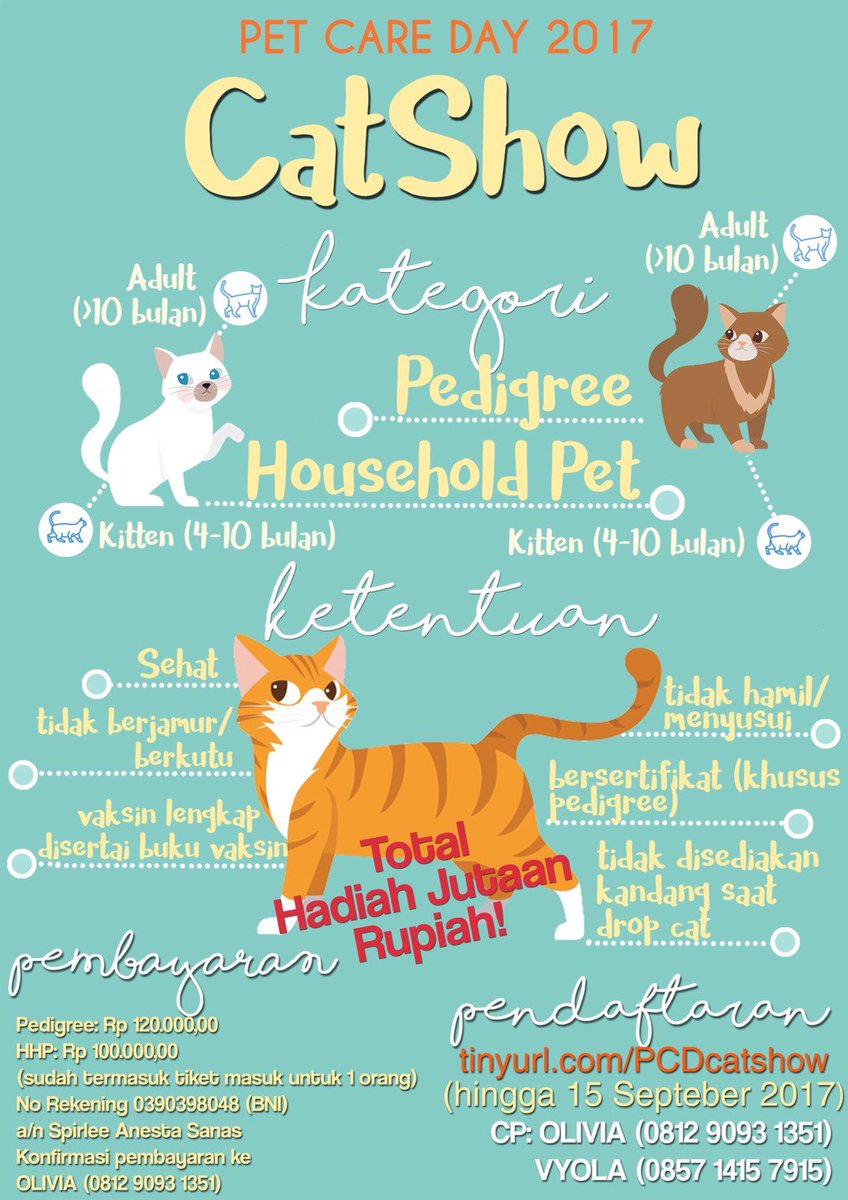 PET CARE DAY 2017
CatShow
kategori
Adult
(>10 bulan)
Adult
(>10 bulan)
Pedigree
Household Pet
Kitten (4-10 bulan)
Kitten (4-10 bulan)
ketentuan
Sehat
tidak berjamur/
berkutu
vaksin lengkap
disertai buku vaksin
tidak hamil/
menyusui
bersertifikat (khusus
pedigree)
tidak disediakan
kandang saat
drop cat
Total
Hadiah Jutaan
Rupiah!
pembayaran
Pedigree: Rp 120.000,00
HHP: Rp 100.000,00
(sudah termasuk tiket masuk untuk 1 orang)
No Rekening 0390398048 (BNI)
a/n Spirlee Anesta Sanas
Konfirmasi pembayaran ke
OLIVIA (0812 9093 1351)
pendaftaran
tinyurl.com/PCDcatshow
(hingga 15 Septeber 2017)
CP: OLIVIA (0812 9093 1351)
VYOLA (0857 1415 7915)